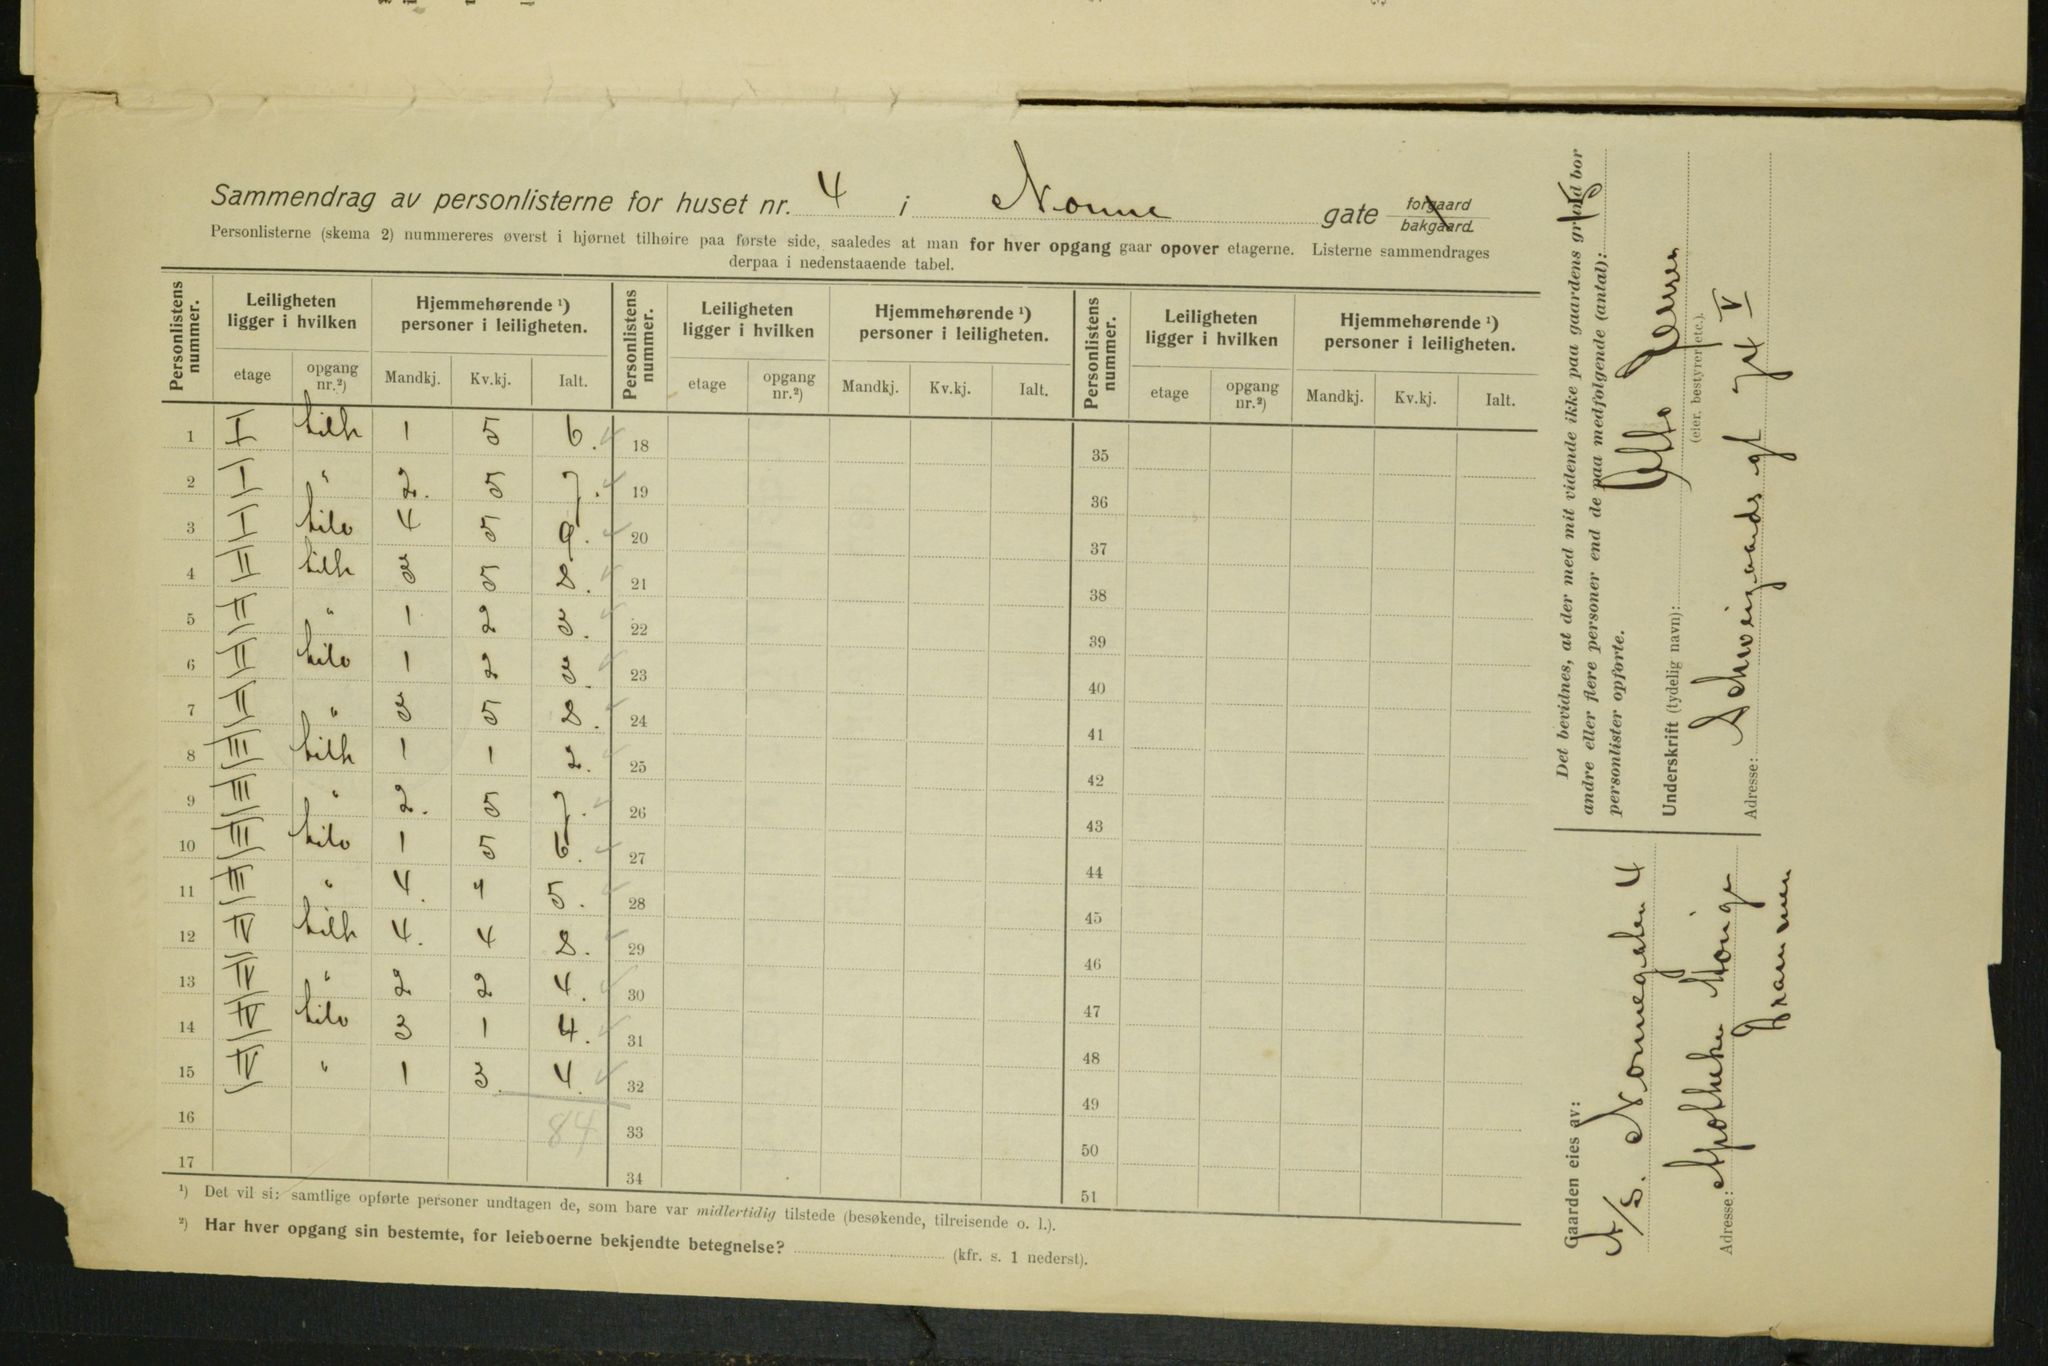 Sammendrag av personlisterne for huset nr. 4 i Nonne gate forgaard bakgaard.
Personlisterne (skema 2) nummereres øverst i hjørnet tilhøire paa første side, saaledes at man for hver opgang gaar opover etagerne. Listerne sammendrages
derpaa i nedenstaaende tabel.
Personlistens nummer. Leiligheten ligger i hvilken Hjemmehørende ¹) personer i leiligheten. Personlistens nummer. Leiligheten ligger i hvilken Hjemmehørende ¹) personer i leiligheten. Personlistens nummer. Leiligheten ligger i hvilken Hjemmehørende ¹) personer i leiligheten.
etage opgang nr.²) Mandkj. Kv.kj. Ialt. etage opgang nr.²) Mandkj. Kv.kj. Ialt. etage opgang nr.²) Mandkj. Kv.kj. Ialt.
1 I tilh 1 5 6. 18 35
2 I " 2. 5 7. 19 36
3 I tilv 4 5 9. 20 37
4 II tilh 3 5 8. 21 38
5 II " 1 2 3. 22 39
6 II tilv 1 2 3. 23 40
7 II " 3 5 8. 24 41
8 III tilh 1 1 2. 25 42
9 III " 2. 5 7. 26 43
10 III tilv 1 5 6. 27 44
11 III " 4. 1 5. 28 45
12 IV tilh 4. 4 8. 29 46
13 IV " 2 2 4. 30 47
14 IV tilv 3 1 4. 31 48
15 IV " 1 3. 4. 32 49
16 84 33 50
17 34 51
¹) Det vil si: samtlige opførte personer undtagen de, som bare var midlertidig tilstede (besøkende, tilreisende o. l.).
²) Har hver opgang sin bestemte, for leieboerne bekjendte betegnelse? (kfr. s. 1 nederst).
Det bevidnes, at der med mit vidende ikke paa gaardens grund bor
andre eller flere personer end de paa medfølgende (antal): 15
personlister opførte.
Underskrift (tydelig navn): Otto Jensen
(eier, bestyrer etc.).
Adresse: Schweigaards gt 74 V
Gaarden eies av:
A/S. Nonnegaten 4
Adresse: Apotheker Moinige
Drammen